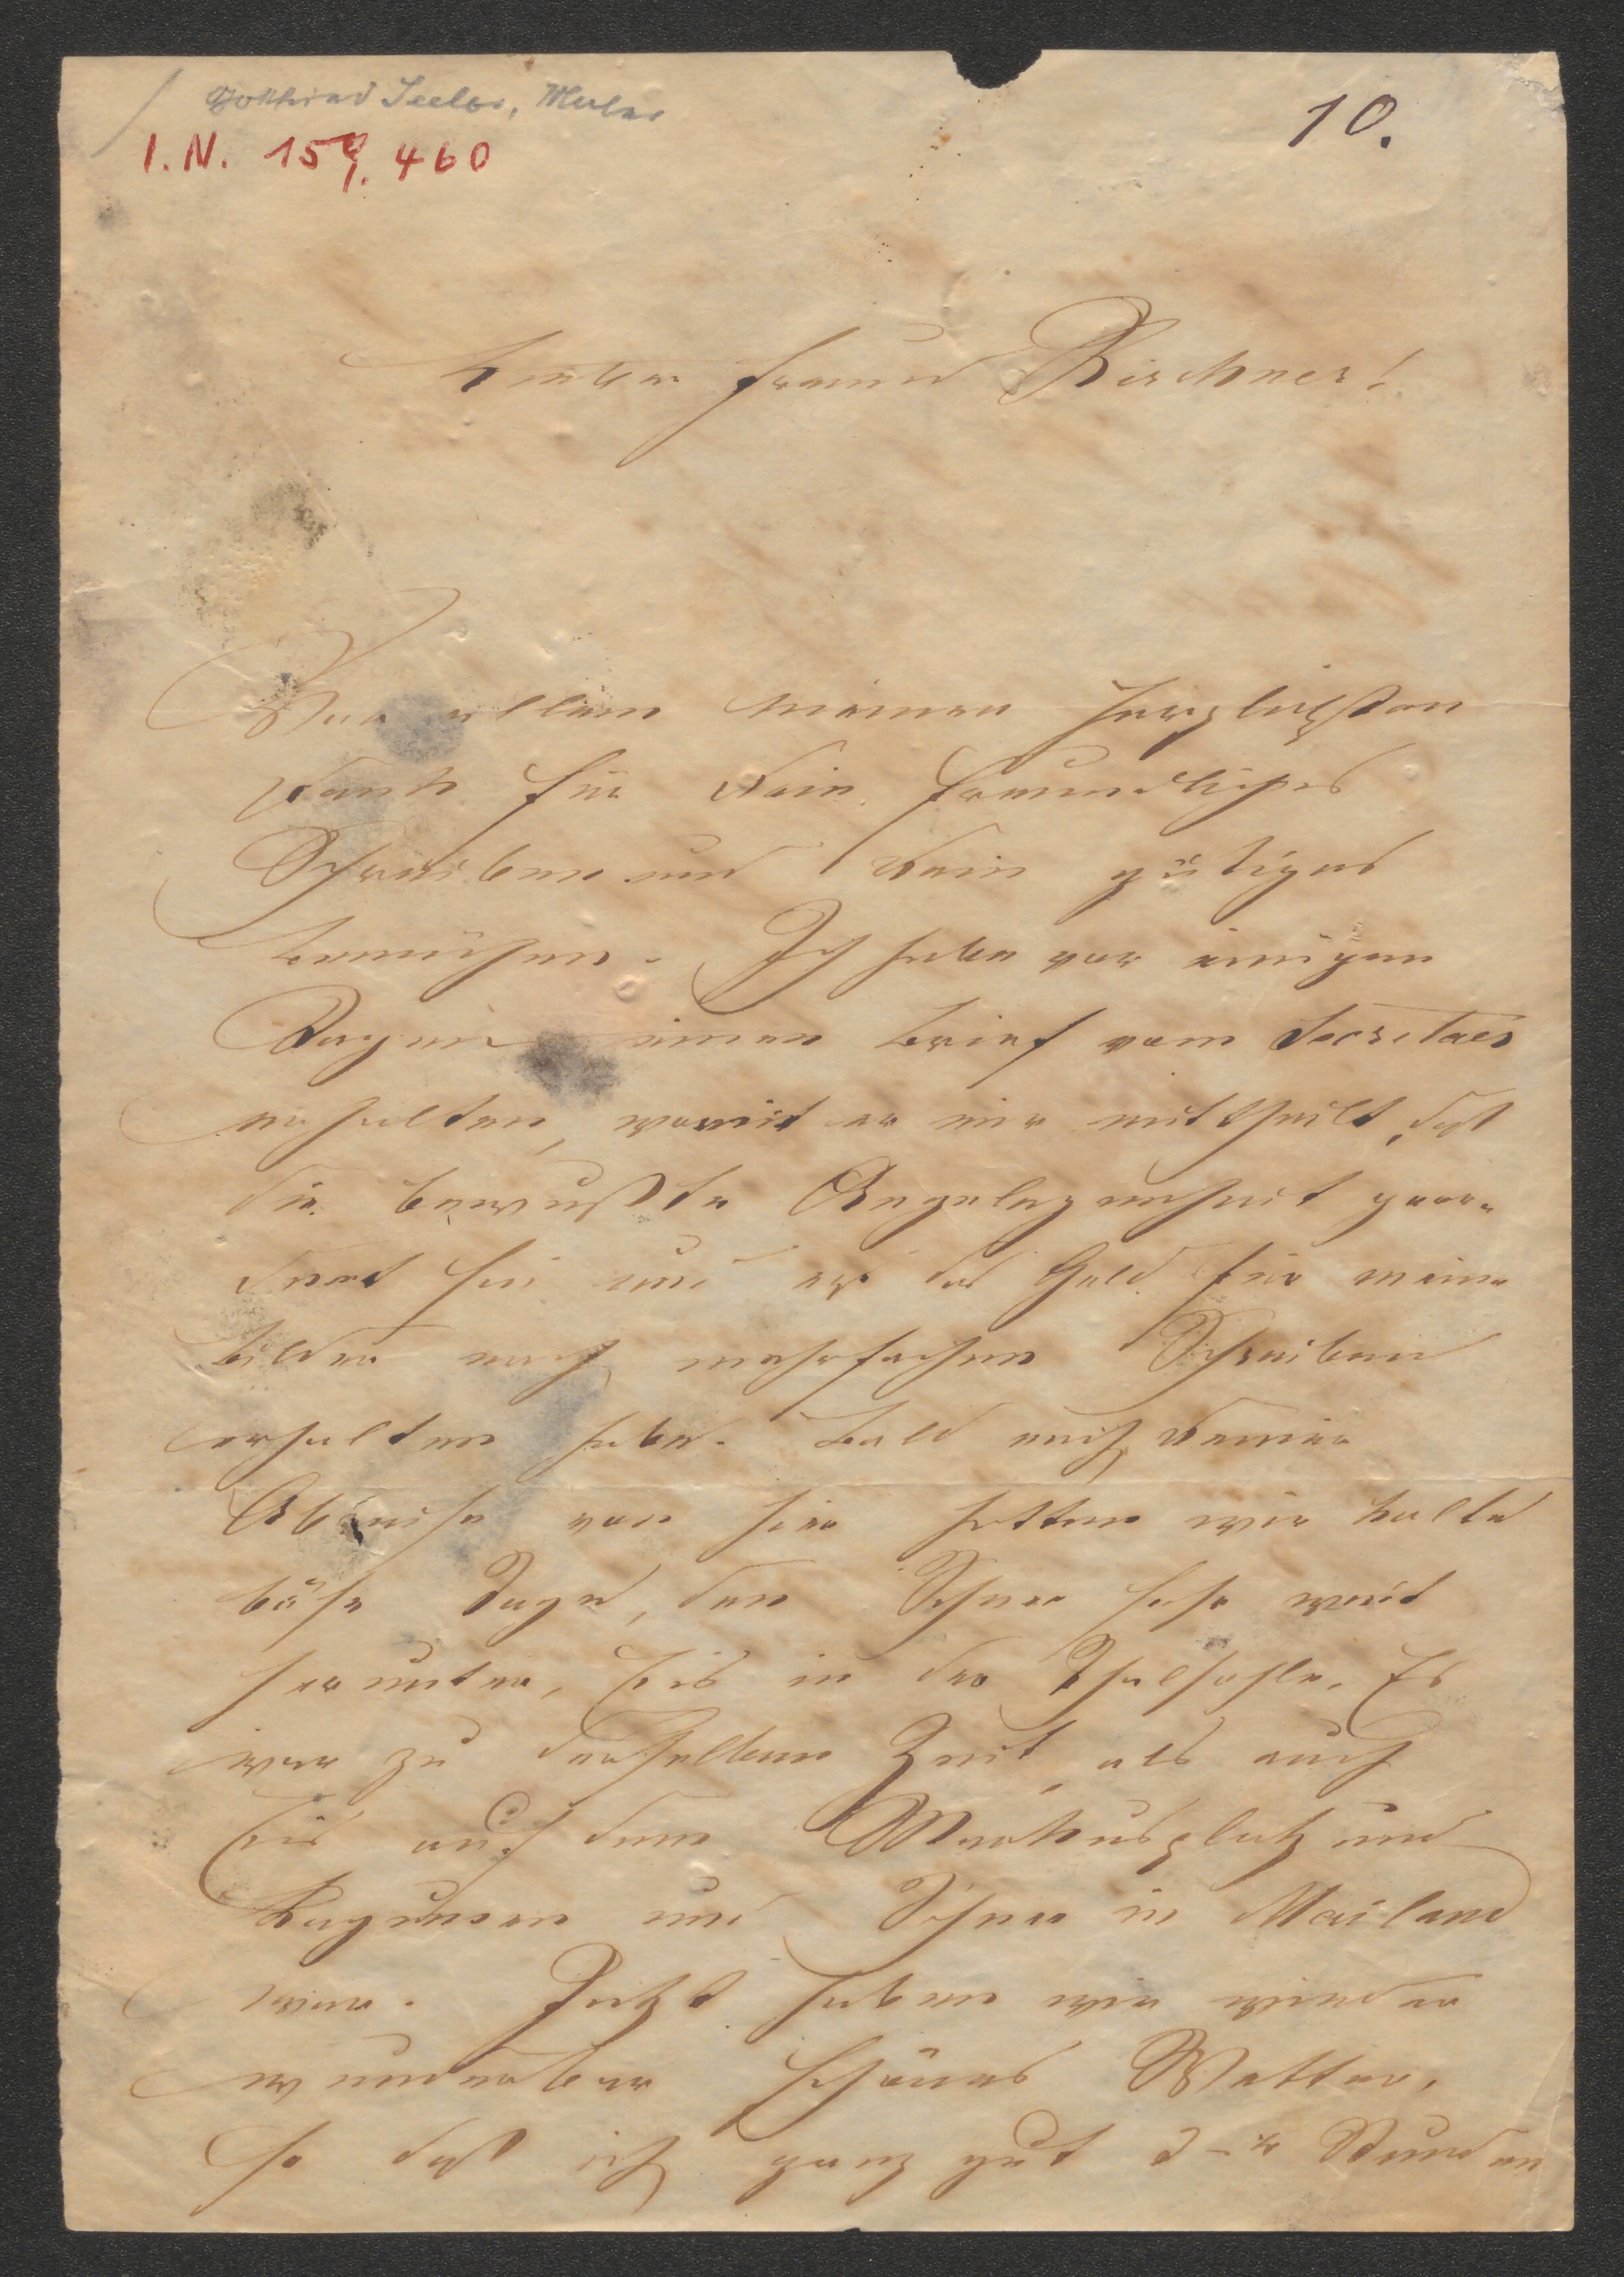 Gottfried Seelos, Maler
10.
I. N. 159.460
Lieber Freund Kirchner!
Vor allem meinen herzlichsten
Dank für dein freundliches
Schreiben und dein gütiges
Bemühen. Ich habe vor einigen
Tagen einen Brief vom Secretaer
erhalten, womit er mir mittheilt, daß
die bewußte Angelegenheit geor-
dnet sei und er das Geld für meine
Bilder nach mehrfachen Schreiben
erhalten habe. Bald nach deiner
Abreise von hier hatten wir kalte
böse Tage, den Schnee sehr weit
herunter, Eis in der Thalsohle. Es
war zu derselben Zeit, als auch
Eis auf dem Markusplatz und
Lagunen und Schnee in Mailand
war. Jetzt haben wir wieder
wunderbar schönes Wetter,
so daß ich ganz gut 3-4 Stunden